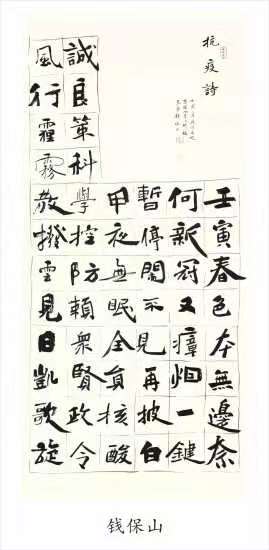 抗疫詩
壬寅春色本無邊奈
何新冠又瘴烟一鍵
暫停不見再披白
甲夜無眠全員核酸
誠良策科學控防賴衆賢政令
風行霾霧散撥雲見日凱歌旋
钱保山